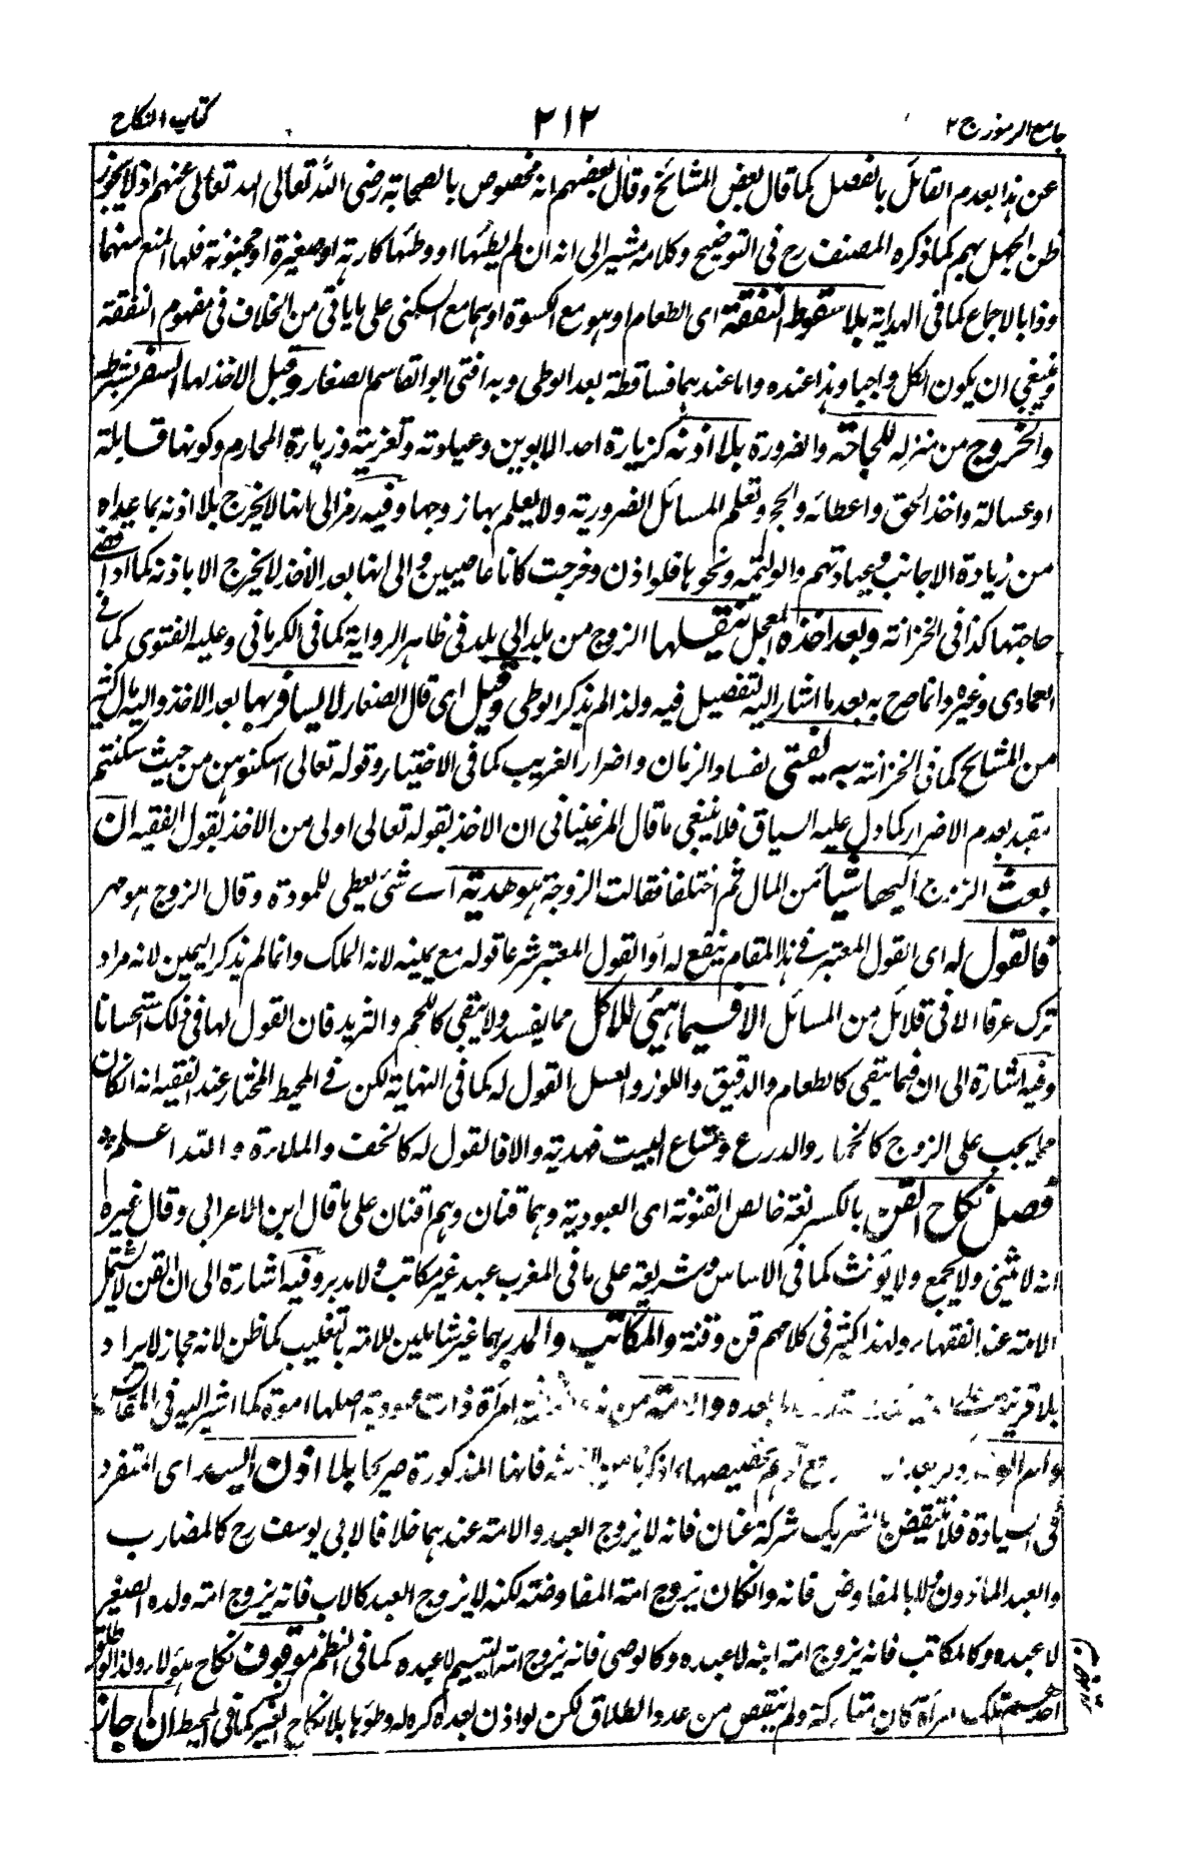 جامع الرموز ج ٢
٢١٢
كتاب النكاح
عن هذا بعدم القائل بالفصل كما قال بعض المشائخ وقال بعضهم انه مخصوص بالصحابة رضى الله تعالى الله تعالى عنهم اذ لا يجوز
ظن الجهل بهم كما ذكره المصنف رح فى التوضيح وكلامه مشير الى انه ان لم يطئها او وطئها كارهة او صغيرة او مجنونة فلها المنع منهما
وذا بالاجماع كما فى الهداية بلا سقوط النفقة اى الطعام او هو مع الكسوة او هما مع السكنى على ما ياتى من الخلاف فى مفهوم النفقة
وينبغى ان يكون الكل واجبا وهذا عنده واما عندهما فساقطة بعد الوطى وبه افتى ابو القاسم الصفار وقبل الاخذ لها السفر
والخروج من منزله للحاجة والضرورة بلا اذنه كزيارة احد الابوين وعيادته وتعزيته وزيارة المحارم وكونها قابلة
او غسالة واخذ الحق واعطائه والحج وتعلم المسائل الضرورية ولا يعلم بها زوجها وفيه رمز الى انها لا يخرج بلا اذنه بما عداه
من زيادة الاجانب وعيادتهم والوليمة ونحوها فلو اذن وخرجت كانا عاصيين والى انها بعد الاخذ لا يخرج الا باذنه كما اذا
حاجتها كذا فى الخزانة وبعد اخذه المعجل ينقلها الزوج من بلد الى بلد فى ظاهر الرواية كما فى الكرمانى وعليه الفتوى كما فى
العمادى وغيره وانما صرح به بعد ما اشار اليه لتفصيل فيه ولذا لم يذكر الوطى وقيل اى قال الصفار لا يسافر بها بعد الاخذ واليه مال كثير
من المشايخ كما فى الخزانة به يفتى لفساد الزمان واضرار الغريب كما فى الاختيار وقوله تعالى اسكنوهن من حيث سكنتم
مقيد بعدم الاضرار كما دل عليه السياق فلا ينبغى ما قال المرغينانى ان الاخذ بقوله تعالى اولى من الاخذ بقول الفقيه ان
بعث الزوج اليها شيأ من المال ثم اختلفا فقالت الزوجة هو هدية اے شئ يعطى للمودة وقال الزوج هو مهر
فالقول له اى القول المعتبر فى هذا المقام ينفع له او القول المعتبر شرعا قوله مع يمينه لانه الملك وانما لم يذكر اليمين لانه مراد
ترك عرفا الا فى قلائل من المسائل الا فيما هيئ للاكل مما يفسد ولا يبقى كاللحم والثريد فان القول لها فى ذلك استحسانا
وفيه اشارة الى ان فيما يبقى كالطعام والدقيق واللوز والعسل القول له كما فى النهاية لكن فى المحيط المختار عند الفقيه انه ان كان
مما يجب على الزوج كالخمار والدرع ومتاع البيت فهدية والا فالقول له كالخف والملاءة والله اعلم
فصل نكاح القن بالكسر لغة خالص القنونة اى العبودية وهما قنان وهم اقنان على ما قال ابن الاعرابى وقال غيره
انه لا يثنى ولا يجمع ولا يؤنث كما فى الاساس وشريعة على ما فى المغرب عبد غير مكاتب ولا مدبر وفيه اشارة الى ان القن لا يشتمل
الامة عند الفقهاء ولهذا كثير فى كلامهم قن وقنة والمكاتب والمدبر هما غير شاملين للامة بالتغليب كما ظن لانه مجاز لا يراد
بلا قرينة بعده والامة من امرأة ذات عبودية اصلها اموة كما اشير اليه فى
تخصيصها فانها المذكورة صريحا بلا اذن السيد اى المتفرد
فى السيادة فلا ينتقض بالشريك شركة عنان فانه لا يزوج العبد والامة عندهما خلافا لابى يوسف رح كالمضارب
والعبد الماذون ولا بالمفاوض فانه وان كان يزوج امة المفاوضة لكنه لا يزوج العبد كالاب فانه يزوج امة ولده الصغير
لا عبده وكالمكاتب فانه يزوج امته ابنه لا عبده وكالوصى فانه يزوج امة اليتيم لا عبده كما فى النظم موقوف نكاح هؤلاء ولذا لو طلق
احدهم تلك امرأة كان متاركة ولم ينتقص من عدد الطلاق لكن لو اذن بعده كره له وطؤها بلا نكاح الغير كما فى المحيط ان جاز